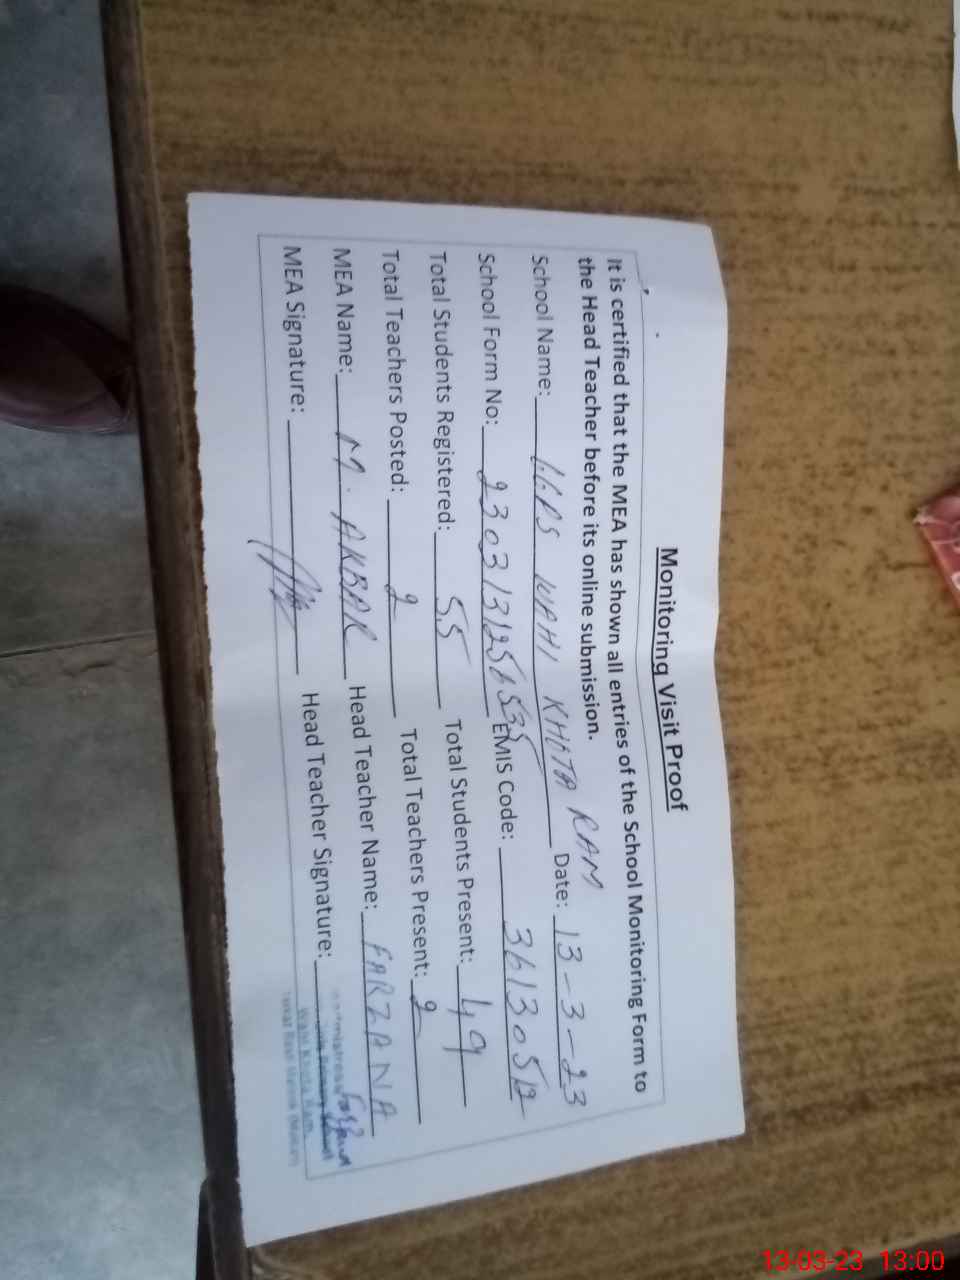 Monitoring Visit Proof
It is certified that the MEA has shown all entries of the School Monitoring Form to
the Head Teacher before its online submission.
School Name: WAHI KHOTA RAM Date: 13-3-23
School Form No: EMIS Code:
Total Students Registered: 55 Total Students Present: 49
Total Teachers Posted: 2 Total Teachers Present: 2
MEA Name: M. AKBAR Head Teacher Name: FARZANA
MEA Signature: Head Teacher Signature:
13-03-23 13:00